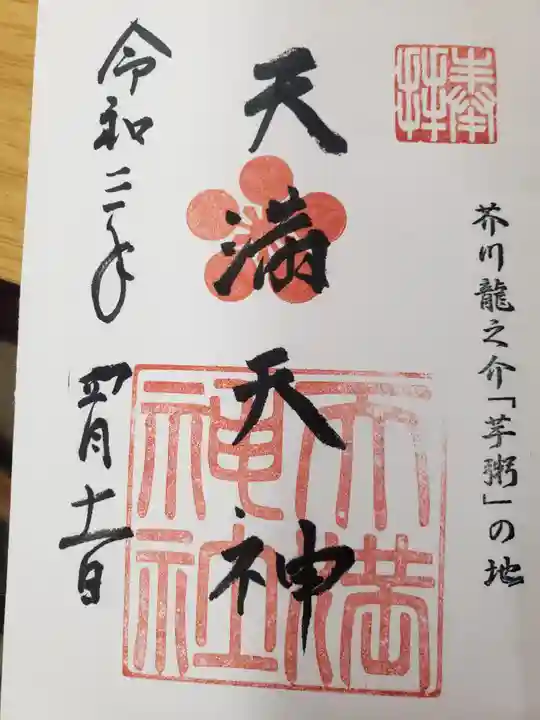 奉拝
芥川龍之介「芋粥」の地
天満天神
天満神社
令和三年
四月十一日